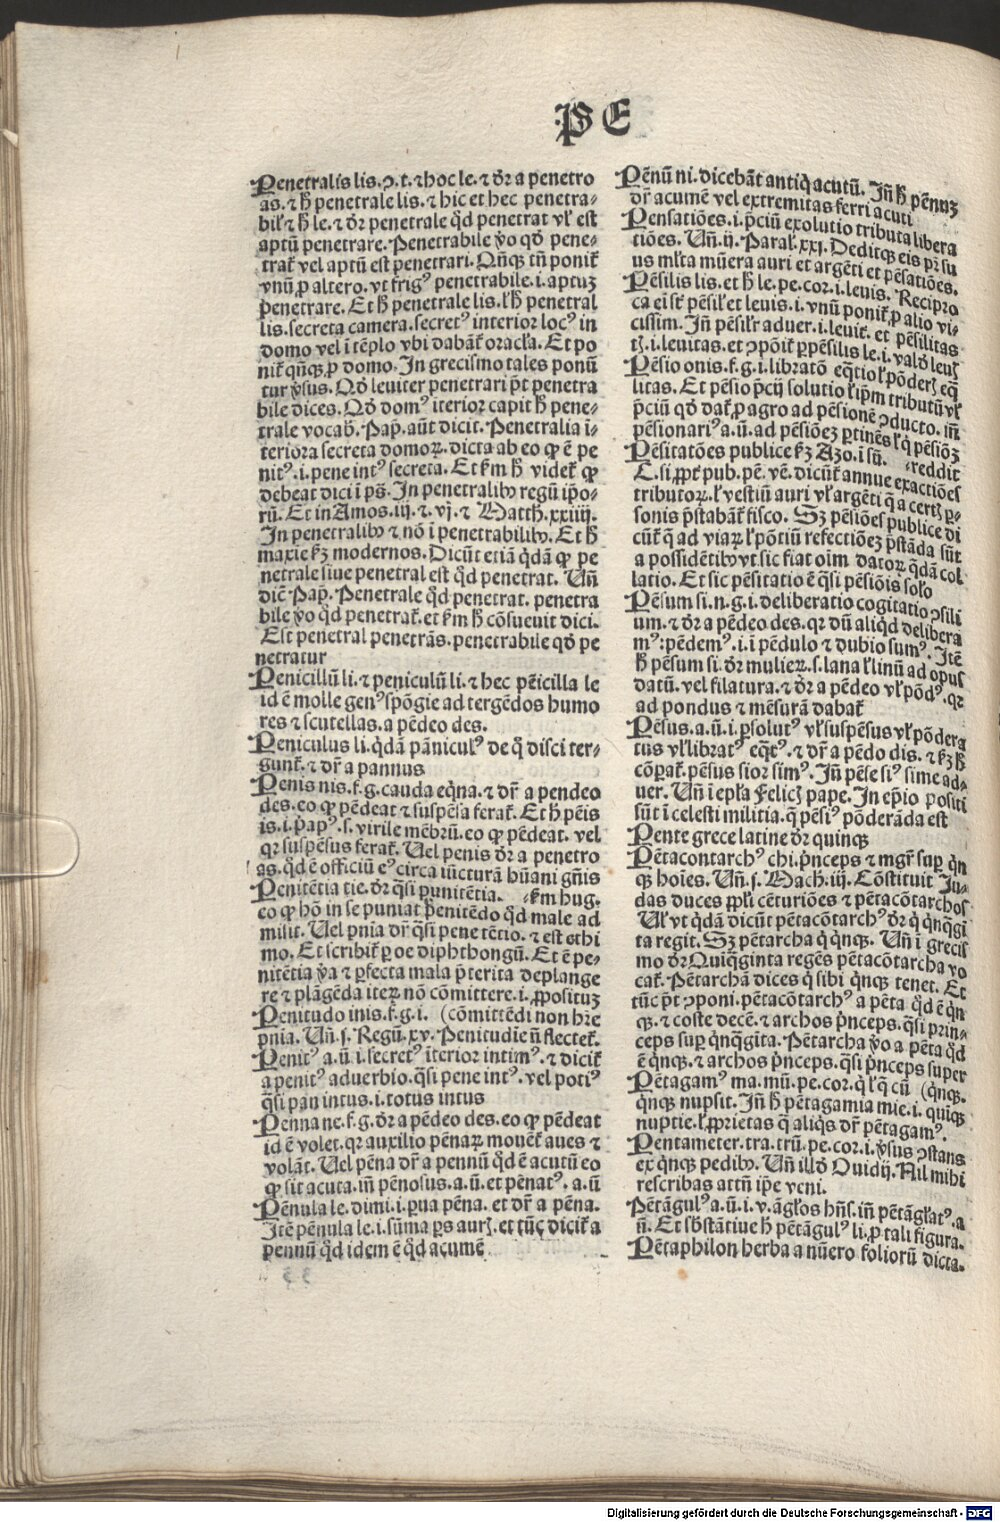 PE
Penetralis lis. ꝯ. t. ⁊ hoc le. ⁊ dr̄ a penetro
as. ⁊ h̄ penetrale lis. ⁊ hic et hec penetra-
bil' ⁊ h̄ le. ⁊ dr̄ penetrale qd̄ penetrat vl' est
aptū penetrare. Penetrabile v̄o qd̄ pene-
trat̄ vel aptū est penetrari. Qn̄qꝫ tn̄ ponit̄
vnū ꝓ altero. vt frigꝰ penetrabile. i. aptuꝫ
penetrare. Et h̄ penetrale lis. l' h̄ penetral
lis. secreta camera. secretꝰ interior locꝰ in
domo vel ī tēplo vbi dabāt̄ oracl'a. Et po
nit̄ qn̄qꝫ ꝓ domo. In grecismo tales ponū
tur v̄sus. Qd̄ leuiter penetrari pt̄ penetra
bile dices. Qd̄ domꝰ īterior capit h̄ pene-
trale vocab̄. Pap̄. aūt dicit. Penetralia i-
teriora secreta domoꝝ. dicta ab eo ꝙ ē pe
nitꝰ. i. pene intꝰ secreta. Et ẜm h̄ videt̄ ꝙ
debeat dici ī ps̄. In penetralibꝰ regū ip̄o-
rū. Et in Amos. iij. ⁊. vj. ⁊ Matth. xxiiij.
In penetralibꝰ ⁊ nō ī penetrabilibꝰ. Et h̄
maxīe ẜꝫ modernos. Dicūt etiā qdā ꝙ pe
netrale siue penetral est qd̄ penetrat. Un̄
dic̄ Pap̄. Penetrale qd̄ penetrat. penetra
bile v̄o qd̄ penetrat̄. et ẜm h̄ cōsueuit dici.
Est penetral penetrās. penetrabile qd̄ pe
netratur
Penicillū li. ⁊ peniculū li. ⁊ hec pēicilla le
id ē molle genꝰ spōgie ad tergēdos humo
res ⁊ scutellas. a pēdeo des.
Peniculus li. qdā pāniculꝰ de q̄ disci ter-
gunt̄. ⁊ dr̄ a pannus
Penis nis. f. g. cauda eqna. ⁊ dr̄ a pendeo
des. eo ꝙ pēdeat ⁊ suspēsa ferat̄. Et h̄ pēis
is. i. p̄apꝰ. s. virile mēbrū. eo ꝙ pēdeat. vel
qꝛ suspēsus ferat̄. Uel penis dr̄ a penetro
as. qd̄ ē officiū eꝰ circa iūcturā hūani gn̄is
Penitētia tie. dr̄ q̄si punitētia. ẜm hug.
eo ꝙ hō in se puniat penitēdo qd̄ male ad
misit. Uel pn̄ia dr̄ q̄si pene tētio. ⁊ est ethi
mo. Et scribit̄ ꝑ oe diphthongū. Et ē pe-
nitētia v̄a ⁊ ꝑfecta mala p̄terita deplange
re ⁊ plāgēda iteꝝ nō cōmittere. i. ꝓposituꝫ
Penitudo inis. f. g. i. (cōmittēdi non hr̄e
pn̄ia. Un̄. j. Regū. xv. Penitudīe n̄ flectet̄.
Penitꝰ a. ū. i. secretꝰ īterior intimꝰ. ⁊ dicit̄
a penitꝰ aduerbio. q̄si pene intꝰ. vel potiꝰ
q̄si pan intus. i. totus intus
Penna ne. f. g. dr̄ a pēdeo des. eo ꝙ pēdeat
id ē volet. qꝛ auxilio pēnaꝝ mouēt̄ aues ⁊
volāt. Uel pēna dr̄ a pennū qd̄ ē acutū eo
ꝙ sit acuta. in̄ pēnosus. a. ū. et pēnatꝰ. a. ū
Pēnula le. dimi. i. ꝑua pēna. et dr̄ a pēna.
Itē pēnula le. i. sūma ꝑs auꝝ. et tūc dicit̄ a
pennū qd̄ idem ē qd̄ acumē
Pēnū ni. dicebāt antiq̄ acutū. In̄ h̄ pēnuꝫ
dr̄ acumē vel extremitas ferri acuti
Pensatiōes. i. p̄ciū exolutio tributa libera
tiōes. Un̄. ij. Paral'. xxj. Deditqꝫ eis pr̄ su
us ml'ta mūera auri et argēti et pēsatiōes.
Pēsilis lis. et h̄ le. pe. cor. i. leuis. Recipro
ca ei sr̄ pēsil' et leuis. i. vnū ponit̄ ꝓ alio vi-
cissim. In̄ pēsilr̄ aduer. i. leuit̄. et pēsilitas
tꝭ. i. leuitas. et ꝯponit̄ ꝑpēsilis le. i. vald̄ leuꝭ
Pēsio onis. f. g. i. libratō eq̄tio l' pōderꝭ eq̄
litas. Et pēsio p̄cij solutio l' ip̄m tributū vl'
p̄ciū qd̄ dat̄ ꝓ agro ad pēsionē ꝯducto. in̄
pēsionariꝰ a. ū. ad pēsiōeꝫ ꝑtinēs l' q̄ pēsiōꝫ
Pēsitatōes publice ẜꝫ Azo. ī sū. reddit
C. si. ꝓpt̄ pub. pē. vē. dicūt̄ annue exactiōes
tributoꝝ. l' vestiū auri vl' argēti q̄ a certꝭ ꝑ-
sonis p̄stabāt̄ fisco. Sꝫ pēsiōes publice di
cūt̄ q̄ ad viaꝝ l' pōtiū refectiōeꝫ p̄stāda sūt
a possidētibꝰ vt sic fiat oīm datoꝝ q̄dā col
latio. Et sic pēsitatio ē q̄si pēsiōis sol'o
Pēsum si. n. g. i. deliberatio cogitatio ꝯsili
um. ⁊ dr̄ a pēdeo des. qꝛ dū aliqd̄ delibera
mꝰ: pēdemꝰ. i. ī pēdulo ⁊ dubio sumꝰ. Itē
h̄ pēsum si. dr̄ mulieꝝ. s. lana l' linū ad opus
datū. vel filatura. ⁊ dr̄ a pēdeo vl' pōdꝰ. qꝛ
ad pondus ⁊ mēsurā dabat̄
Pēsus. a. ū. i. ꝑsolutꝰ vl' suspēsus vl' pōdera
tus vl' libratꝰ eq̄tꝰ. ⁊ dr̄ a pēdo dis. ⁊ ẜꝫ h̄
cōꝑat̄. pēsus sior simꝰ. In̄ pēse siꝰ sime ad-
uer. Un̄ ī epl'a Felicꝭ pape. In ep̄io positi
sūt ī celesti militia. q̄ pēsiꝰ pōderāda est
Pente grece latine dr̄ quinqꝫ
Pētacontarchꝰ chi. p̄nceps ⁊ mgr̄ suꝑ qn̄
qꝫ hoīes. Un̄. j. Mach. iij. Cōstituit Ju-
das duces ppl'i cēturiōes ⁊ pētacōtarchos
Ul' vt qdā dicūt pētacōtarchꝰ dr̄ q̄ qn̄qgī
ta regit. Sꝫ pētarcha q̄ qn̄qꝫ. Un̄ ī grecis
mo dr̄ Quiqginta regēs pētacōtarcha vo
cat̄. Pētarchā dices q̄ sibi qn̄qꝫ tenet. Et
tūc pt̄ ꝯponi. pētacōtarchꝰ a pēta qd̄ ē qn̄
qꝫ. ⁊ coste decē. ⁊ archos p̄nceps. q̄si prin-
ceps suꝑ qn̄qgīta. Pētarcha v̄o a pēta qd̄
ē qn̄qꝫ. ⁊ archos p̄nceps. q̄si p̄nceps super
Pētagamꝰ ma. mū. pe. cor. q̄ l' q̄ cū (qn̄qꝫ.
qn̄qꝫ nupsit. In̄ h̄ pētagamia mie. i. quiqꝫ
nuptie. l' ꝓprietas q̄ aliq̄s dr̄ pētagamꝰ.
Pentameter. tra. trū. pe. cor. i. v̄sus ꝯstans
ex qn̄qꝫ pedibꝰ. Un̄ illd̄ Ouidij. Nil mihi
rescribas attn̄ ip̄e veni.
Pētāgulꝰ a. ū. i. v. āgl'os hn̄s. in̄ pētāgl'atꝰ. a
ū. Et sb̄stātiue h̄ pētāgulꝰ li. ꝓ tali figura.
Pētaphilon herba a nūero folioꝝ dicta.
Digitalisierung gefördert durch die Deutsche Forschungsgemeinschaft - DFG